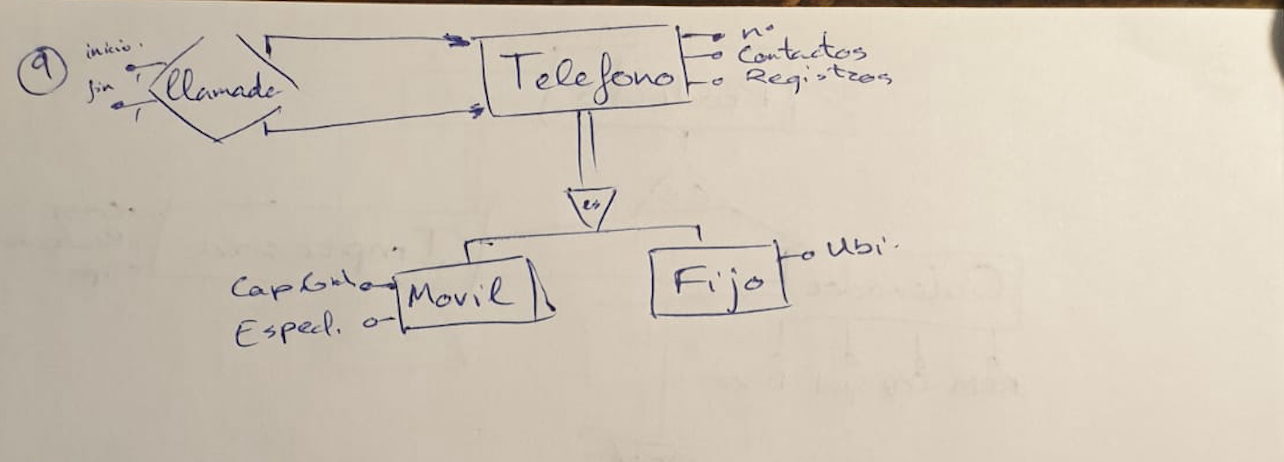 9
inicio.
fin
llamada
Telefono
nº
Contactos
Registros
es
Movil
Especl.
Fijo
Ubi.